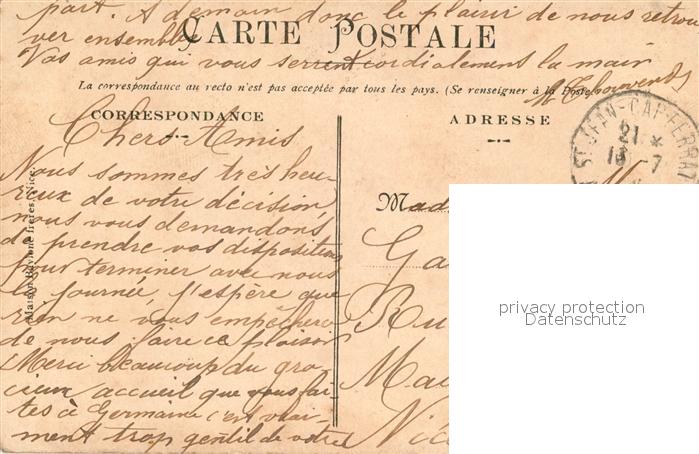 part. A demain donc le plaisir de nous retrou
ver ensemble
CARTE POSTALE
Vos amis qui vous serrent cordialement la main
La correspondance au recto n'est pas acceptée par tous les pays. (Se renseigner à la Poste)
CORRESPONDANCE
ADRESSE
ST JEAN-CAP-FERRAT
21 *
13 -7
Chers Amis
Nous sommes très heu-
reux de votre décision,
nous vous demandons
de prendre vos dispositions
pour terminer avec nous
la journée, j'espère que
rien ne vous empêchera
de nous faire ce plaisir
Merci beaucoup du gra-
cieux accueil que vous fai-
tes à Germaine c'est vrai-
ment trop gentil de votre
M
Mad
Ga
Ru
Ma
Nic
Frères, Nice.
privacy protection
Datenschutz